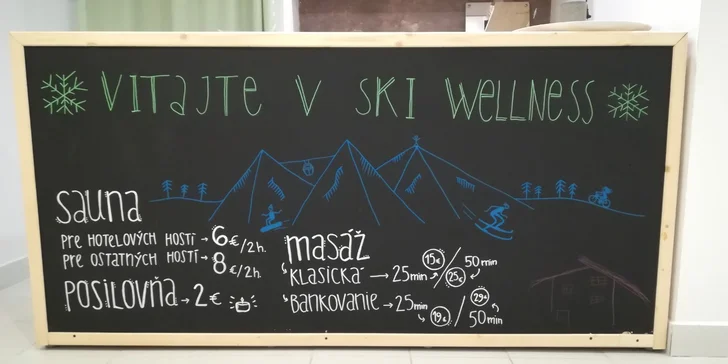 VITAJTE V SKI WELLNESS
sauna
PRE HOTELOVÝCH HOSTÍ → 6€/2h.
PRE OSTATNÝCH HOSTÍ → 8€/2h.
POSILOVŇA → 2€
masáž
KLASICKÁ → 25min 15€ / 50min 25€
BANKOVANIE → 25min 19€ / 50min 29€